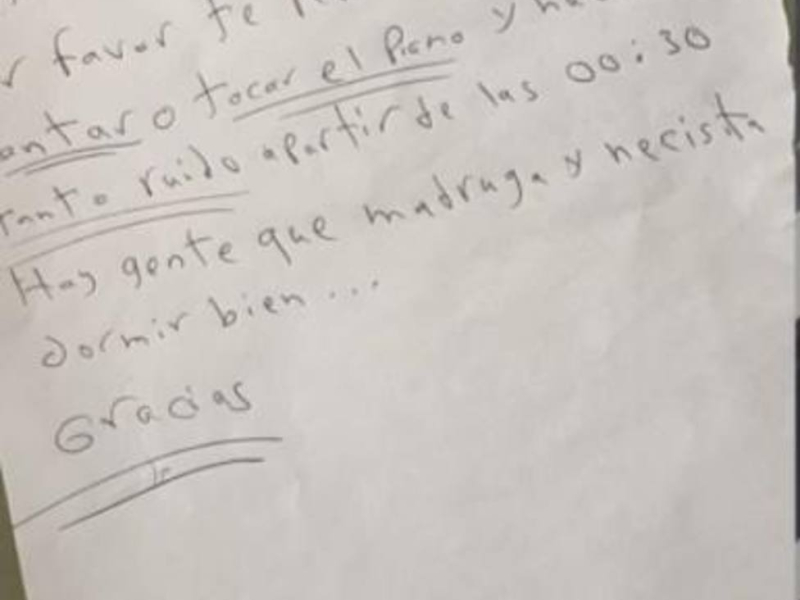 favor te
cantar o tocar el Piano y ha
tanto ruido apartir de las 00:30
Hay gente que madruga y necista
dormir bien...
Gracias